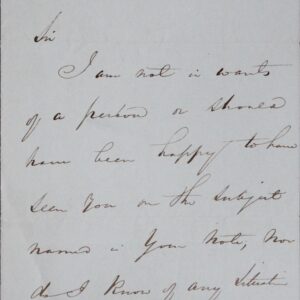 Sir
I am not in wants
of a person or should
have been happy to have
seen you on the subject
named in your note, nor
do I know of any Situati